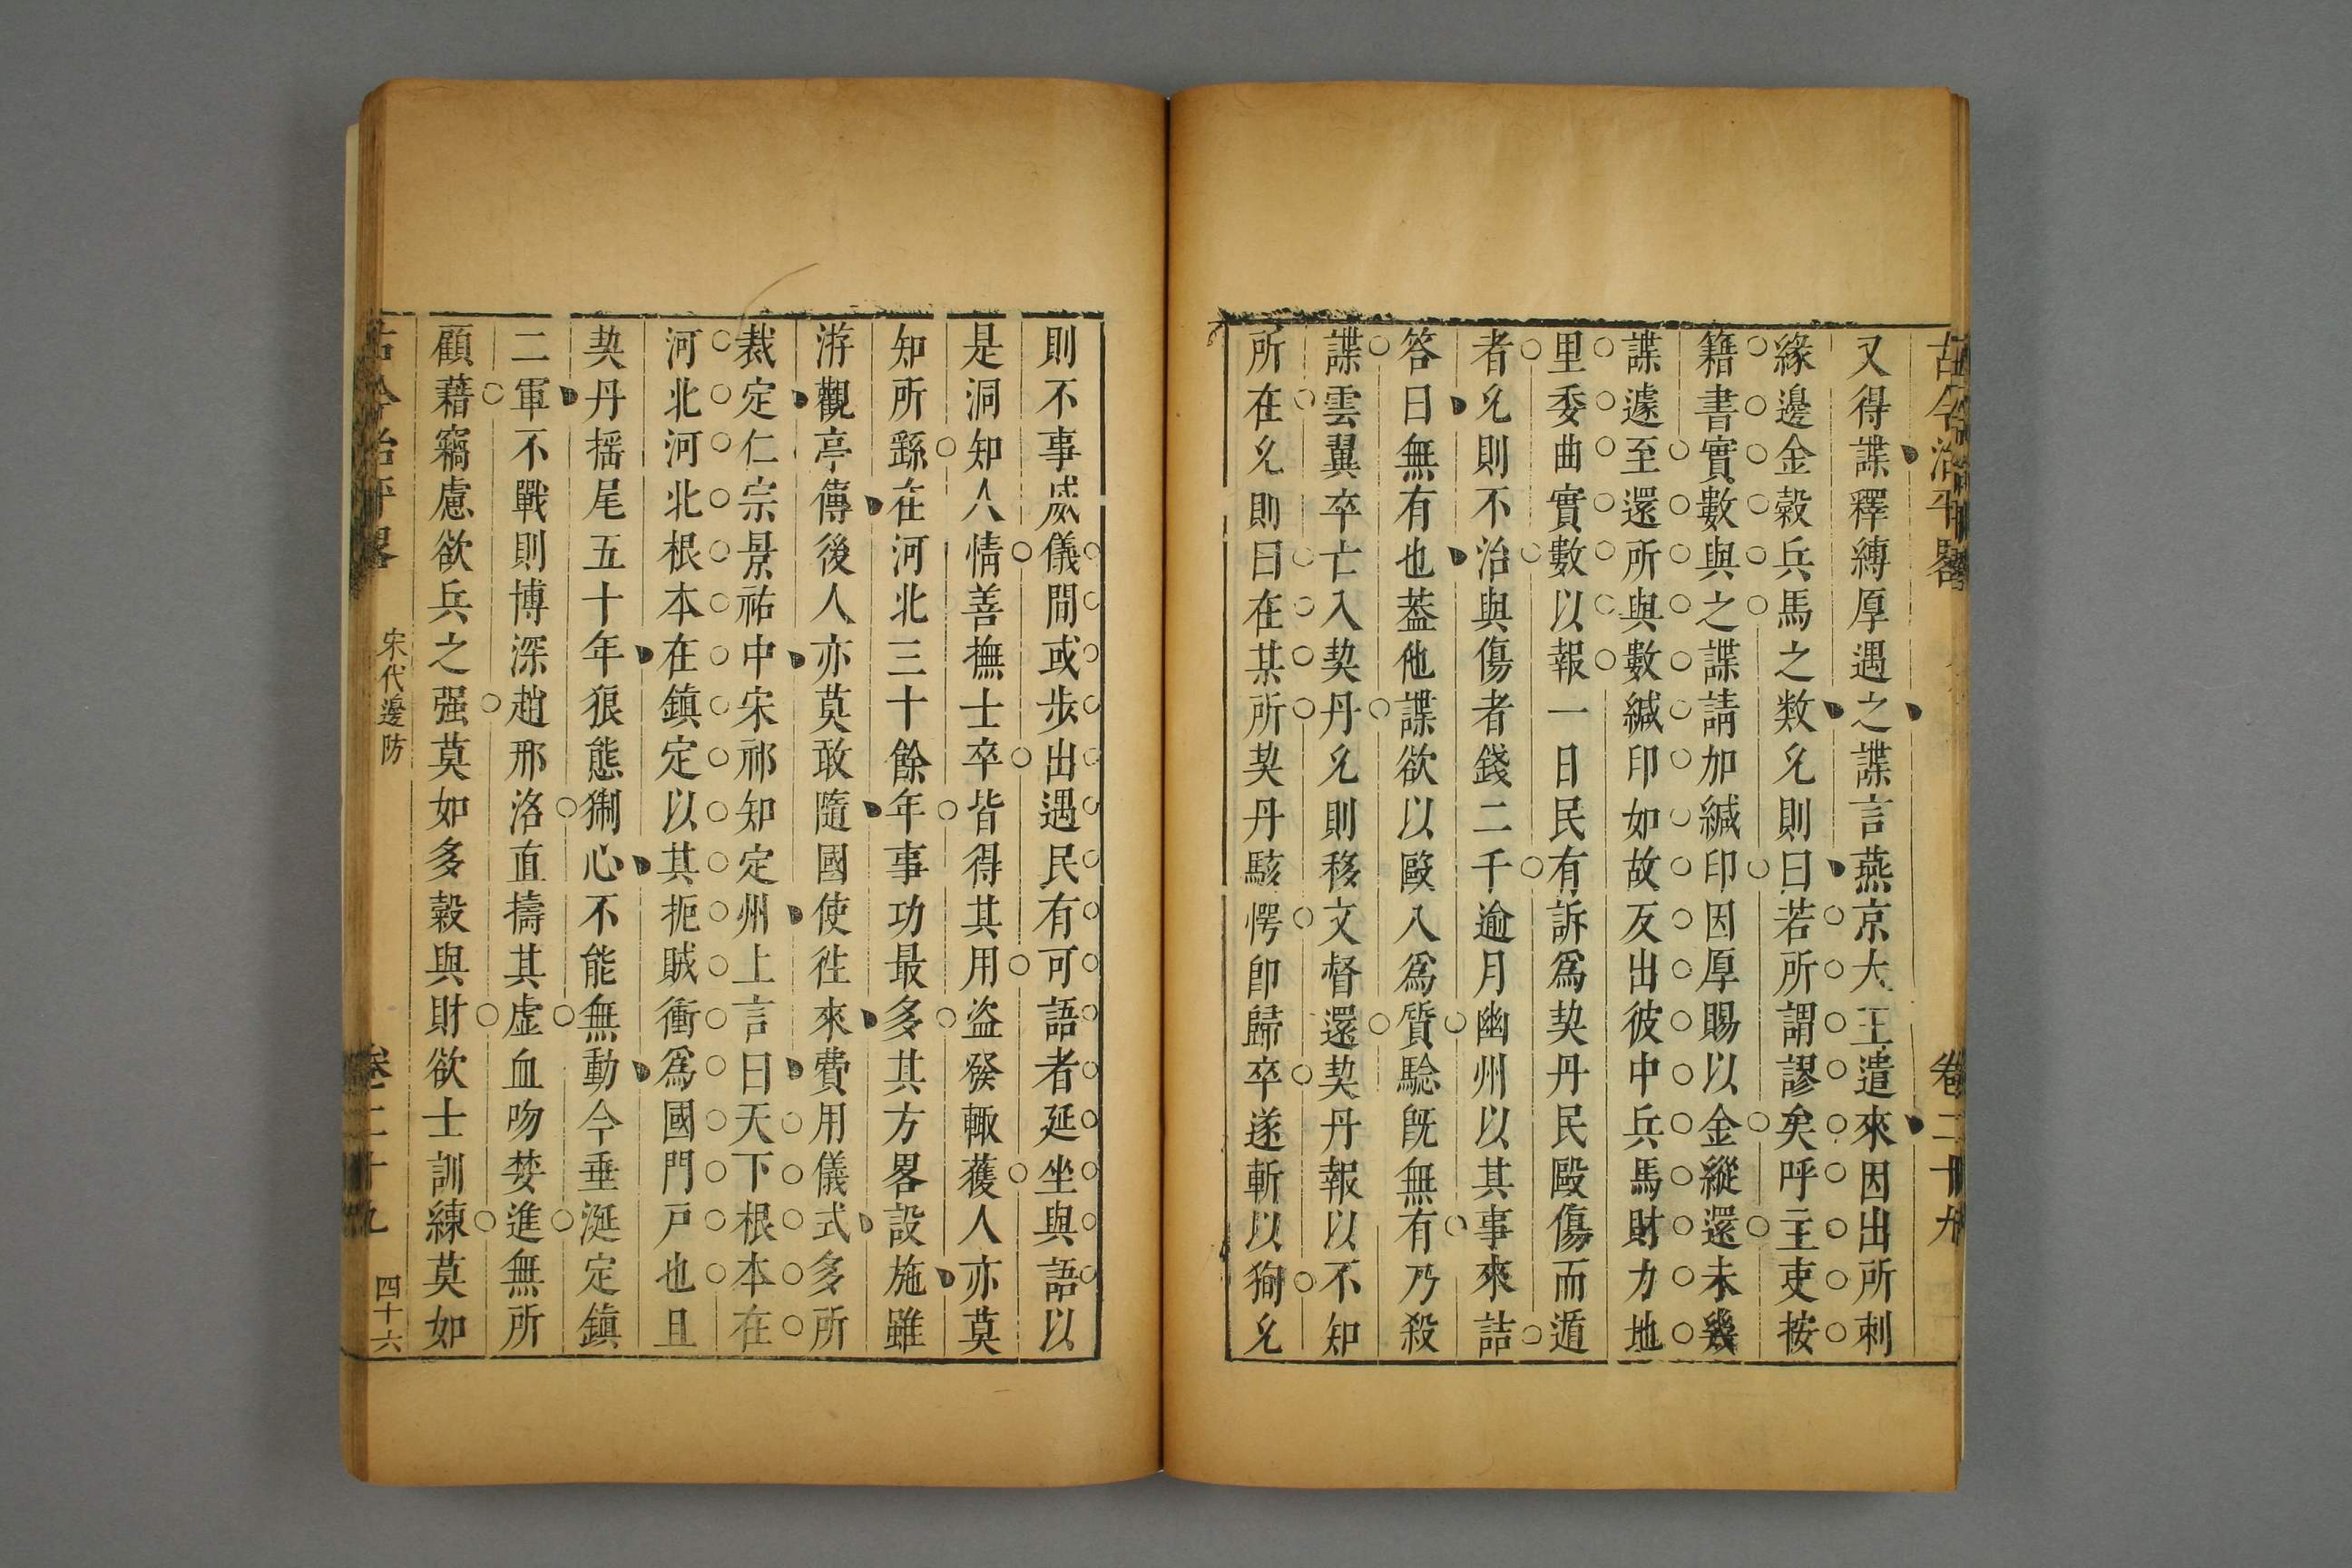 古今治平畧 卷二十九
又得諜釋縛厚遇之諜言燕京大王遣來因出所刺
緣邊金穀兵馬之數允則曰若所謂謬矣呼主吏按
籍書實數與之諜請加緘印因厚賜以金縱還未幾
諜遽至還所與數緘印如故反出彼中兵馬財力地
里委曲實數以報一日民有訴爲契丹民毆傷而遁
者允則不治與傷者錢二千逾月幽州以其事來詰
答曰無有也葢他諜欲以毆人爲質騐旣無有乃殺
諜雲翼卒亡入契丹允則移文督還契丹報以不知
所在允則曰在某所契丹駭愕卽歸卒遂斬以狥允
則不事威儀間或步出遇民有可語者延坐與語以
是洞知人情善撫士卒皆得其用盜發輙獲人亦莫
知所繇在河北三十餘年事功最多其方畧設施雖
游觀亭傳後人亦莫敢隨國使徃來費用儀式多所
裁定仁宗景祐中宋祁知定州上言曰天下根本在
河北河北根本在鎮定以其扼賊衝爲國門戶也且
契丹揺尾五十年狼態猘心不能無動今垂涎定鎮
二軍不戰則博深趙邢洛直擣其虛血吻婪進無所
顧藉竊慮欲兵之强莫如多穀與財欲士訓練莫如
古今治平畧 宋代邊防 卷二十九 四十六